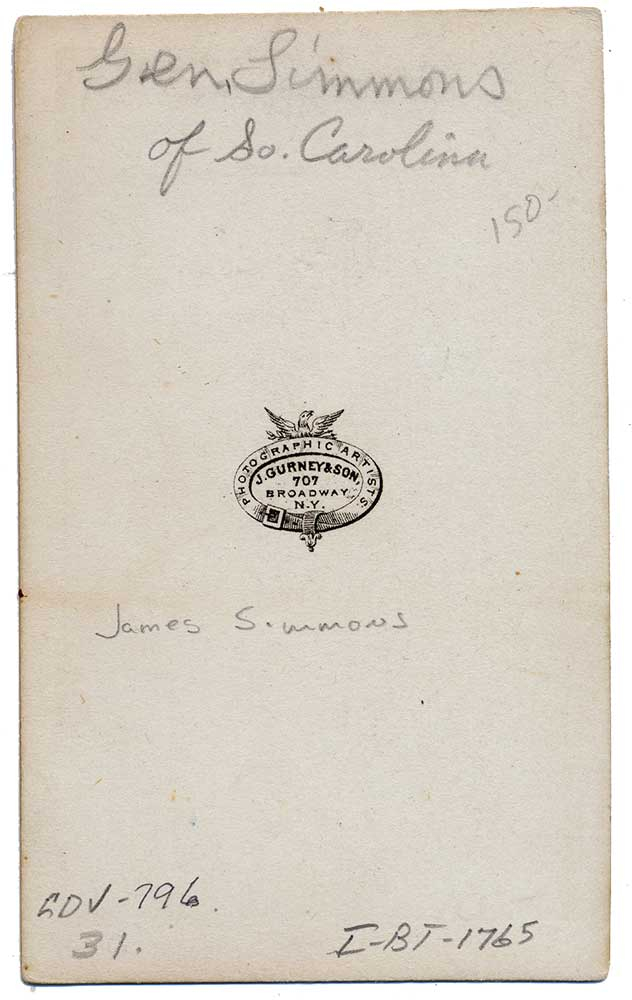 Gen. Simmons
of So. Carolina
150-
PHOTOGRAPHIC ARTISTS
J. GURNEY & SON,
707
BROADWAY,
N.Y.
James Simmons
CDV-796.
31.
I-BT-1765